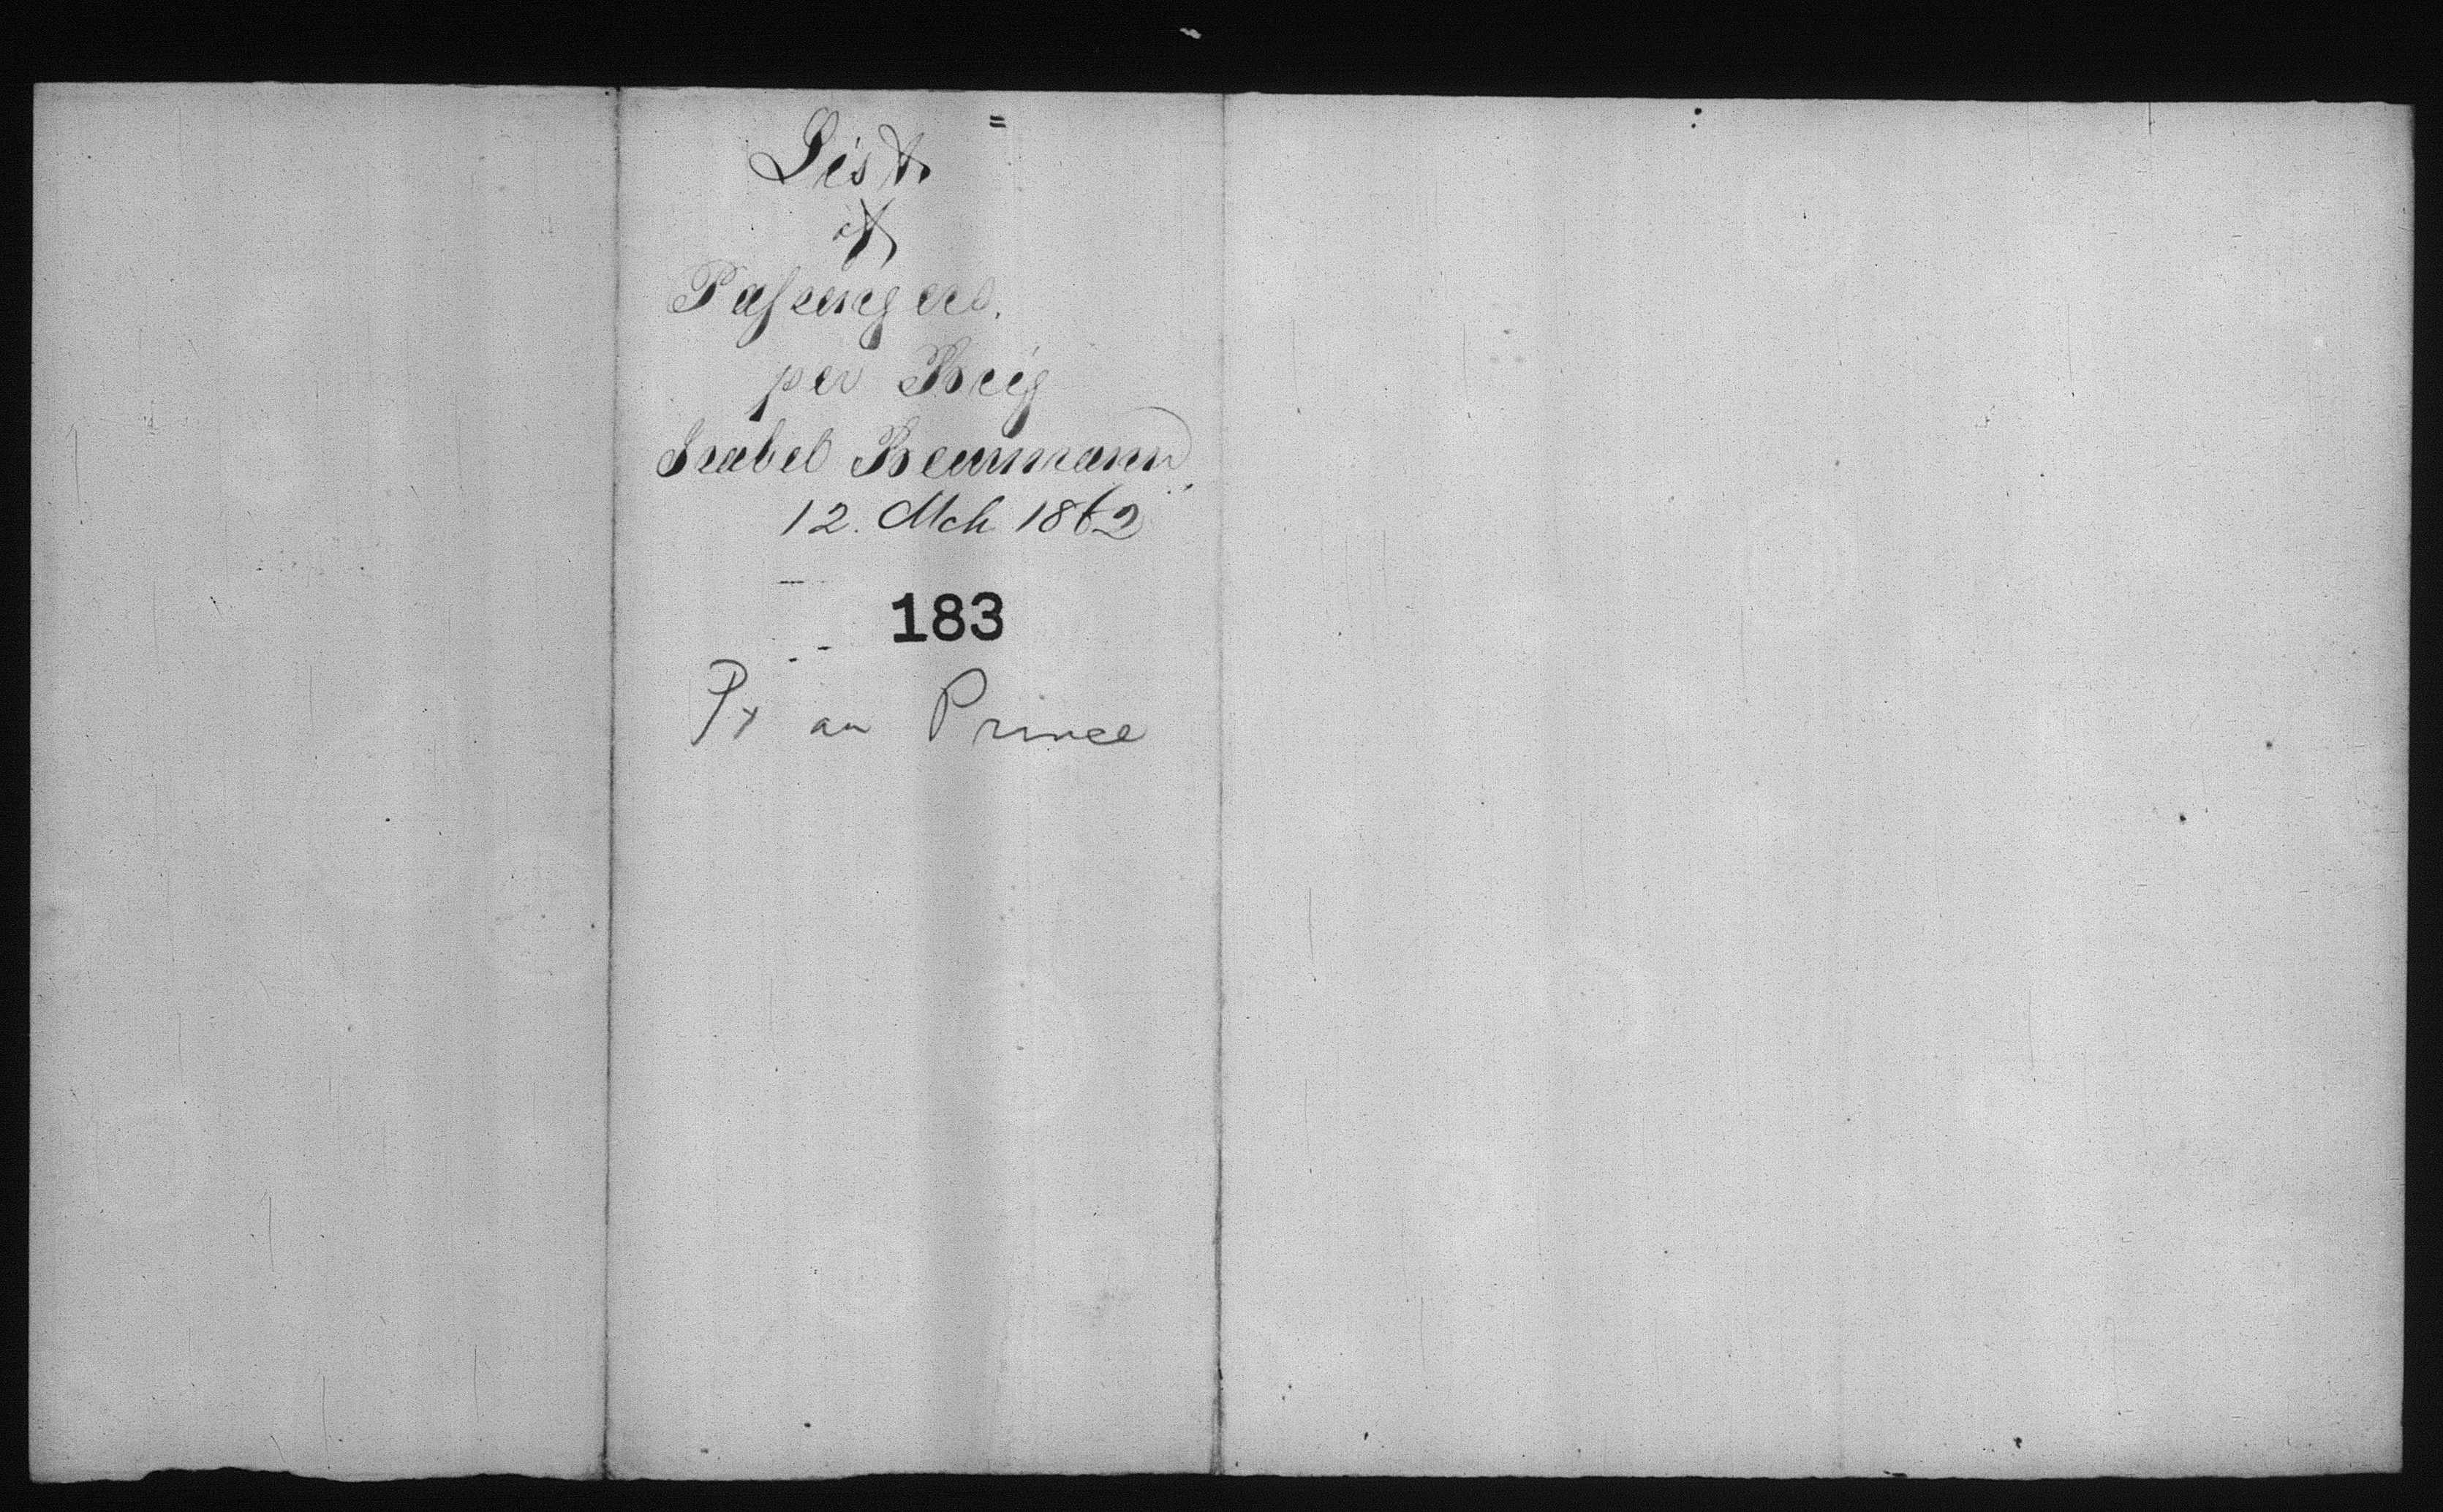 List
of
Passengers.
per Brig
Isabel Beurmann
12. Mch 1862
183
Pt au Prince